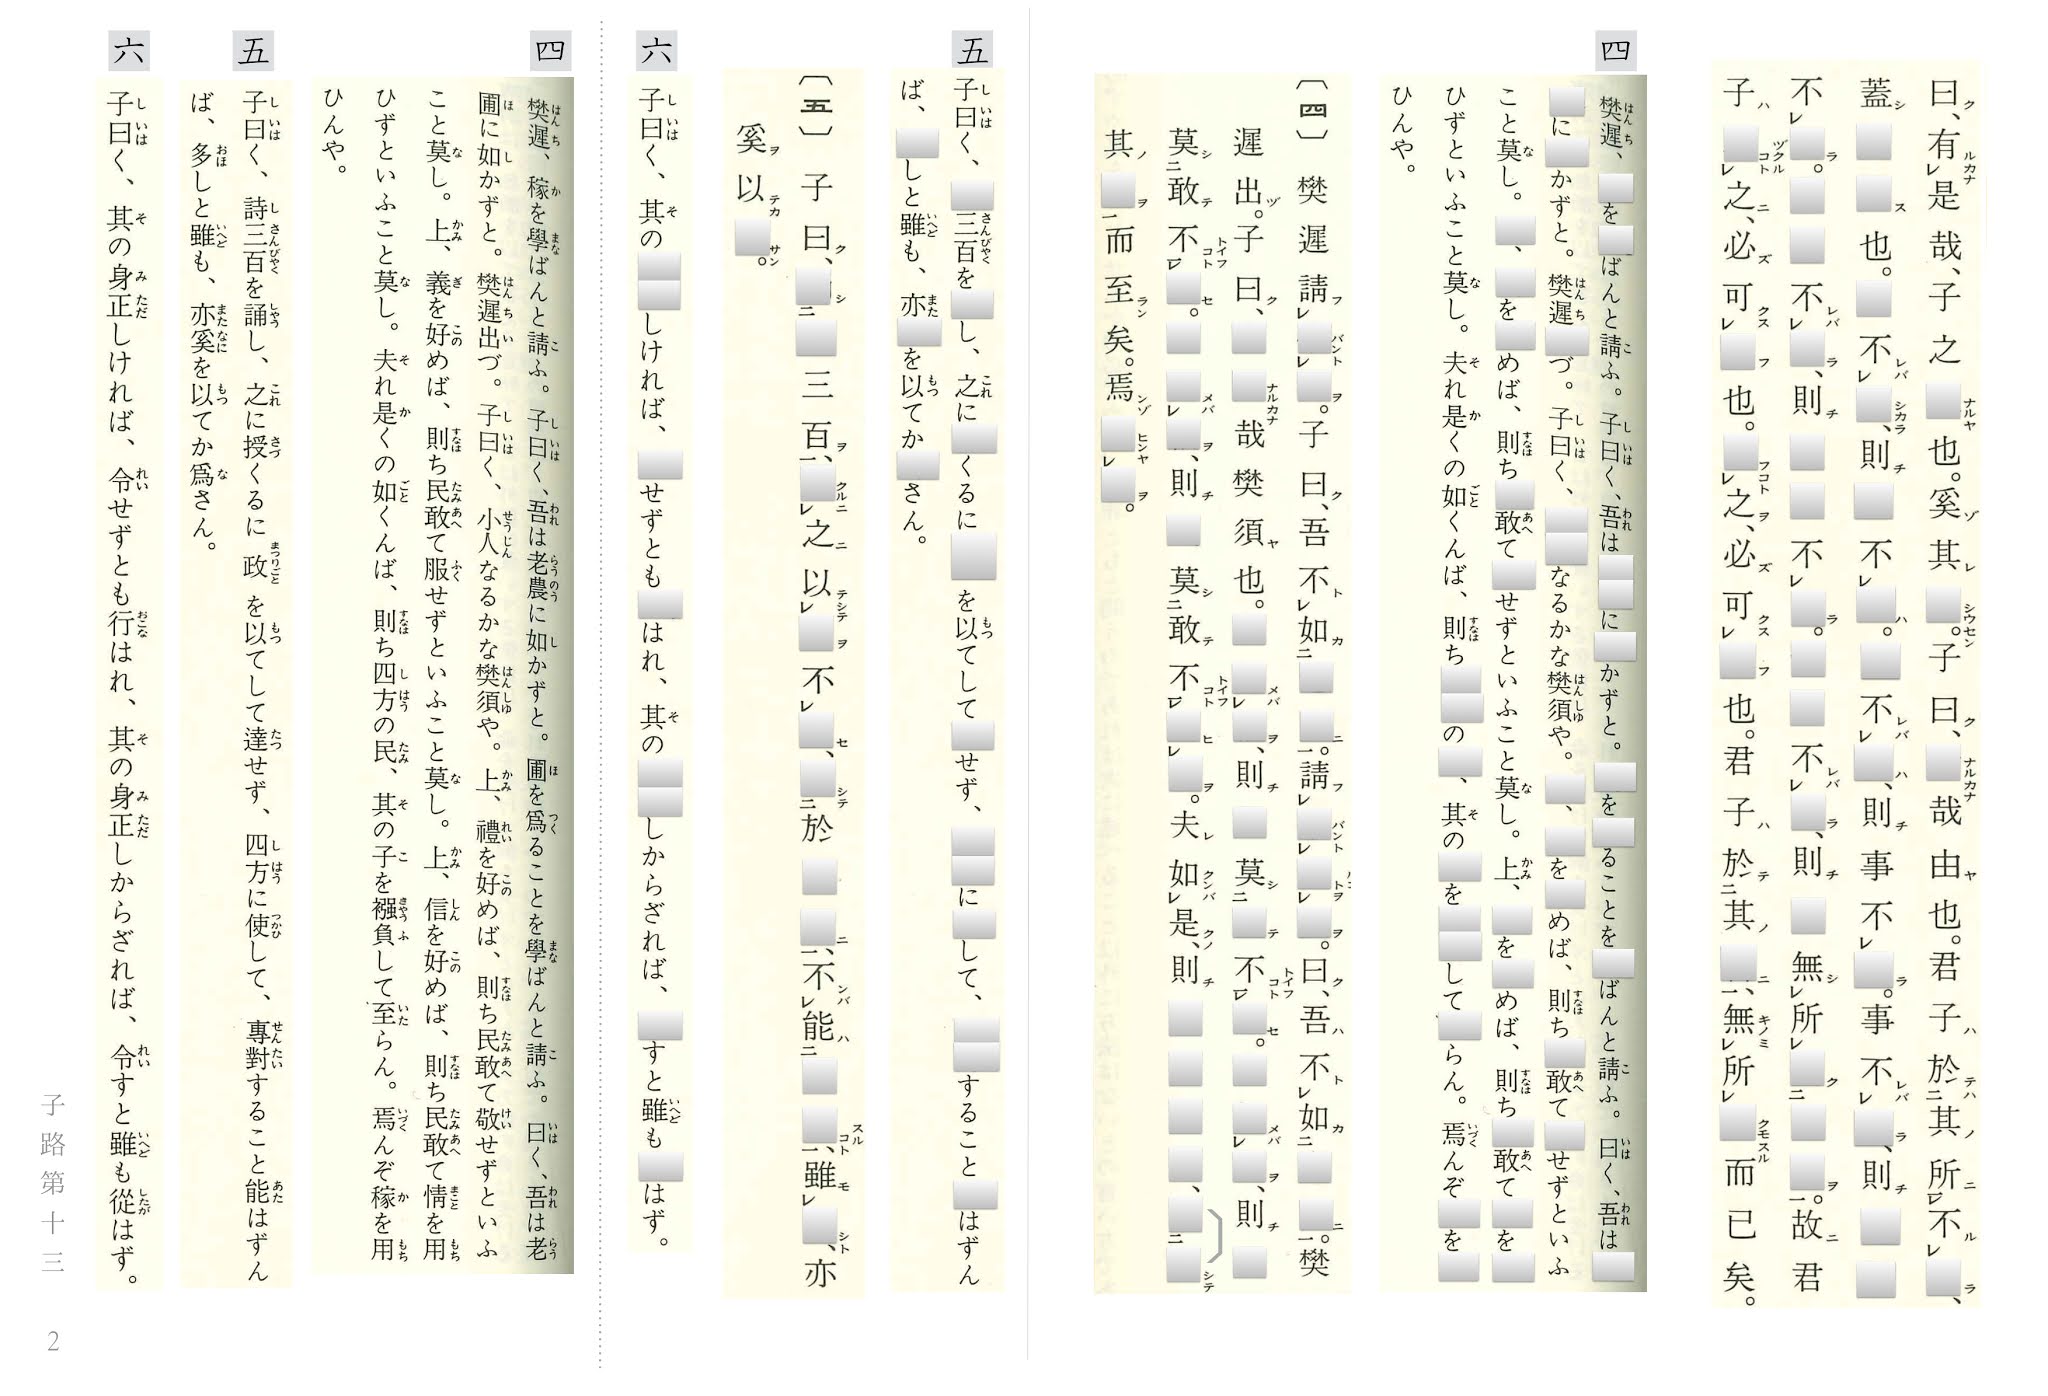 曰、有是哉、子之□也。奚其□。子曰、□哉由也。君子於其所不□、
蓋□□也。□不□、則□不□。□不□、則事不□。事不□、則□□
不□。□□不□、則□不□。□□不□、則□無所□□□。故君
子□之、必可□也。□之、必可□也。君子於其□、無所□而已矣。
四
樊遲、□を□ばんと請ふ。子曰く、吾は□□に□かずと。□を□ることを□ばんと請ふ。曰く、吾は□
□に□かずと。樊遲□づ。子曰く、□□なるかな樊須や。□、□を□めば、則ち□敢て□せずといふ
こと莫し。□、□を□めば、則ち□敢て□せずといふこと莫し。上、□を□めば、則ち□敢て□を□
ひずといふこと莫し。夫れ是くの如くんば、則ち□□の□、其の□を□□して□らん。焉んぞ□を□
ひんや。
〔四〕樊遲請□□。子曰、吾不如□□。請□□□。曰、吾不如□□。樊
遲出。子曰、□□哉樊須也。□□□、則□莫□不□。□□□、則□
莫敢不□。□□□、則□莫敢不□□。夫如是、則□□□□、□□
其□而至矣。焉□□。
五
子曰く、□三百を□し、之に□くるに□を以てして□せず、□□に□して、□□すること□はずん
ば、□しと雖も、亦□を以てか□さん。
〔五〕子曰、□□三百、□之以□不□、□於□□、不能□□、雖□、亦
奚以□。
六
子曰く、其の□□しければ、□せずとも□はれ、其の□□しからざれば、□すと雖も□はず。
四
樊遲、稼を學ばんと請ふ。子曰く、吾は老農に如かずと。圃を爲ることを學ばんと請ふ。曰く、吾は老
圃に如かずと。樊遲出づ。子曰く、小人なるかな樊須や。上、禮を好めば、則ち民敢て敬せずといふ
こと莫し。上、義を好めば、則ち民敢て服せずといふこと莫し。上、信を好めば、則ち民敢て情を用
ひずといふこと莫し。夫れ是くの如くんば、則ち四方の民、其の子を襁負して至らん。焉んぞ稼を用
ひんや。
五
子曰く、詩三百を誦し、之に授くるに政を以てして達せず、四方に使して、專對すること能はずん
ば、多しと雖も、亦奚を以てか爲さん。
六
子曰く、其の身正しければ、令せずとも行はれ、其の身正しからざれば、令すと雖も從はず。
子路第十三
2